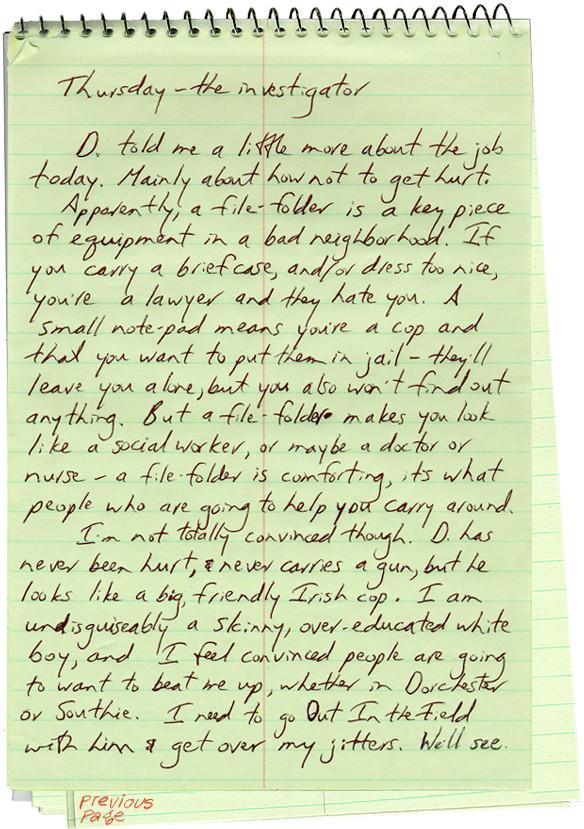 Thursday - the investigator
D. told me a little more about the job
today. Mainly about how not to get hurt.
Apparently, a file-folder is a key piece
of equipment in a bad neighborhood. If
you carry a briefcase, and/or dress too nice,
you're a lawyer and they hate you. A
small note-pad means you're a cop and
that you want to put them in jail - they'll
leave you alone, but you also won't find out
anything. But a file-folder makes you look
like a social worker, or maybe a doctor or
nurse - a file-folder is comforting, its what
people who are going to help you carry around.
I'm not totally convinced though. D. has
never been hurt, & never carries a gun, but he
looks like a big, friendly Irish cop. I am
undisguiseably a skinny, over-educated white
boy, and I feel convinced people are going
to want to beat me up, whether in Dorchester
or Southie. I need to go Out In the Field
with him & get over my jitters. We'll see.
Previous
Page